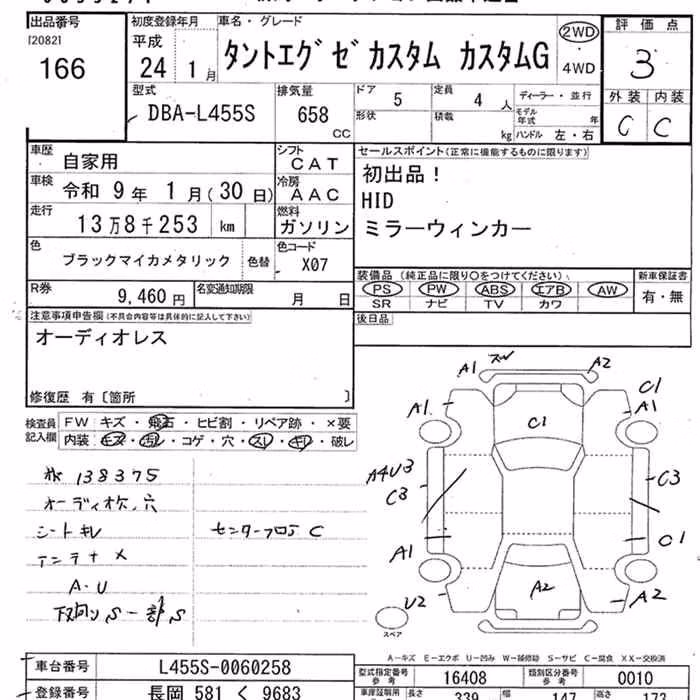 出品番号
[20821
166
初度登録年月
平成
24 1 月
車名・グレード
タントエグゼ カスタム カスタムG
2WD
・
4WD
評価点
3
型式
DBA-L455S
排気量
658
CC
ドア
5
定員
4 人
ディーラー・並行
形状
積載
kg
モデル年式 年
ハンドル 左・右
外装 内装
C C
車歴 自家用
シフト CAT
車検 令和 9 年 1 月(30 日)
冷房 AAC
走行 13万8千253 km
燃料 ガソリン
色 ブラックマイカメタリック 色替
色コード X07
R券 9,460 円
名変通知期限 月 日
セールスポイント(正常に機能するものに限ります)
初出品!
HID
ミラーウィンカー
装備品 (純正品に限り○をつけてください)
新車保証書
PS PW ABS エアB AW
有・無
SR ナビ TV カワ
後日品
注意事項申告欄(不具合内容等は具体的に記入して下さい)
オーディオレス
修復歴 有〔箇所 〕
検査員記入欄
FW キズ・飛石・ヒビ割・リペア跡・×要
内装 キズ・汚レ・コゲ・穴・スレ・キレ・破レ
138375
オーディオ欠、穴
シートキレ
センターフロア C
アンテナ メ
A・U
下回りS 一部S
A1
A2
A1
C1
A1
C1
A4U3
C3
C3
A1
C1
U2
A2
A2
スペア
A-キズ E-エクボ U-凹み W-補修跡 S-サビ C-腐食 XX-交換済
車台番号 L455S-0060258
型式指定番号 参考 16408
類別区分番号 参考 0010
登録番号 長岡 581 く 9683
長さ 339
幅 147
高さ 173